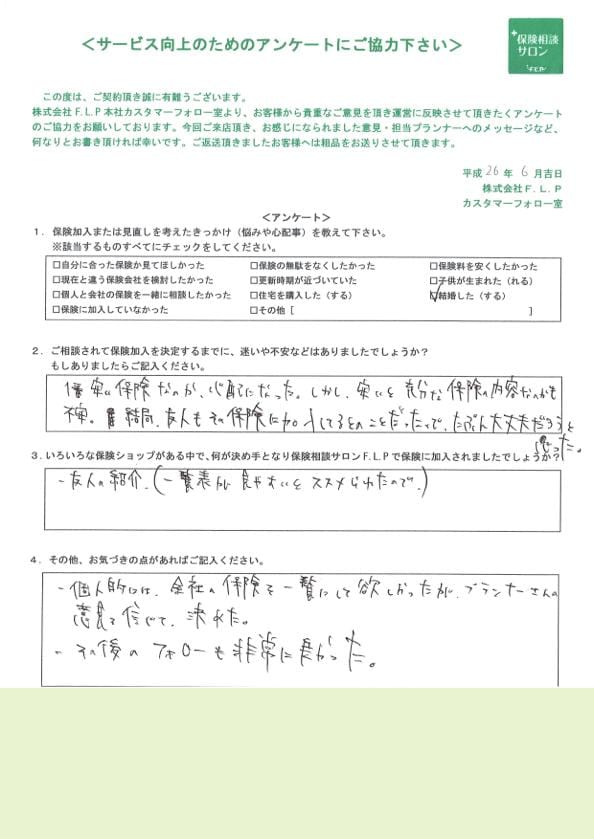 ＜サービス向上のためのアンケートにご協力下さい＞
保険相談
サロン
F.L.P
この度は、ご契約頂き誠に有難うございます。
株式会社F.L.P本社カスタマーフォロー室より、お客様から貴重なご意見を頂き運営に反映させて頂きたくアンケート
のご協力をお願いしております。今回ご来店頂き、お感じになられました意見・担当プランナーへのメッセージなど、
何なりとお書き頂ければ幸いです。ご返送頂きましたお客様へは粗品をお送りさせて頂きます。
平成 26 年 6 月吉日
株式会社F.L.P
カスタマーフォロー室
＜アンケート＞
1．保険加入または見直しを考えたきっかけ（悩みや心配事）を教えて下さい。
※該当するものすべてにチェックをしてください。
□自分に合った保険か見てほしかった □保険の無駄をなくしたかった □保険料を安くしたかった
□現在と違う保険会社を検討したかった □更新時期が近づいていた □子供が生まれた（れる）
□個人と会社の保険を一緒に相談したかった □住宅を購入した（する） ☑結婚した（する）
□保険に加入していなかった □その他［ ］
2．ご相談されて保険加入を決定するまでに、迷いや不安などはありましたでしょうか？
もしありましたらご記入ください。
安い保険なのが、心配になった。しかし、安いと充分な保険の内容なのかも
不安。結局、友人もその保険に加入してるとのことだったので、たぶん大丈夫だろうと
思った。
3．いろいろな保険ショップがある中で、何が決め手となり保険相談サロンF.L.Pで保険に加入されましたでしょうか？
- 友人の紹介。（一覧表が見やすいとススメられたので。）
4．その他、お気づきの点があればご記入ください。
- 個人的には、全社の保険を一覧にして欲しかったが、プランナーさんの
意見を信じて、決めた。
- その後のフォローも非常に良かった。